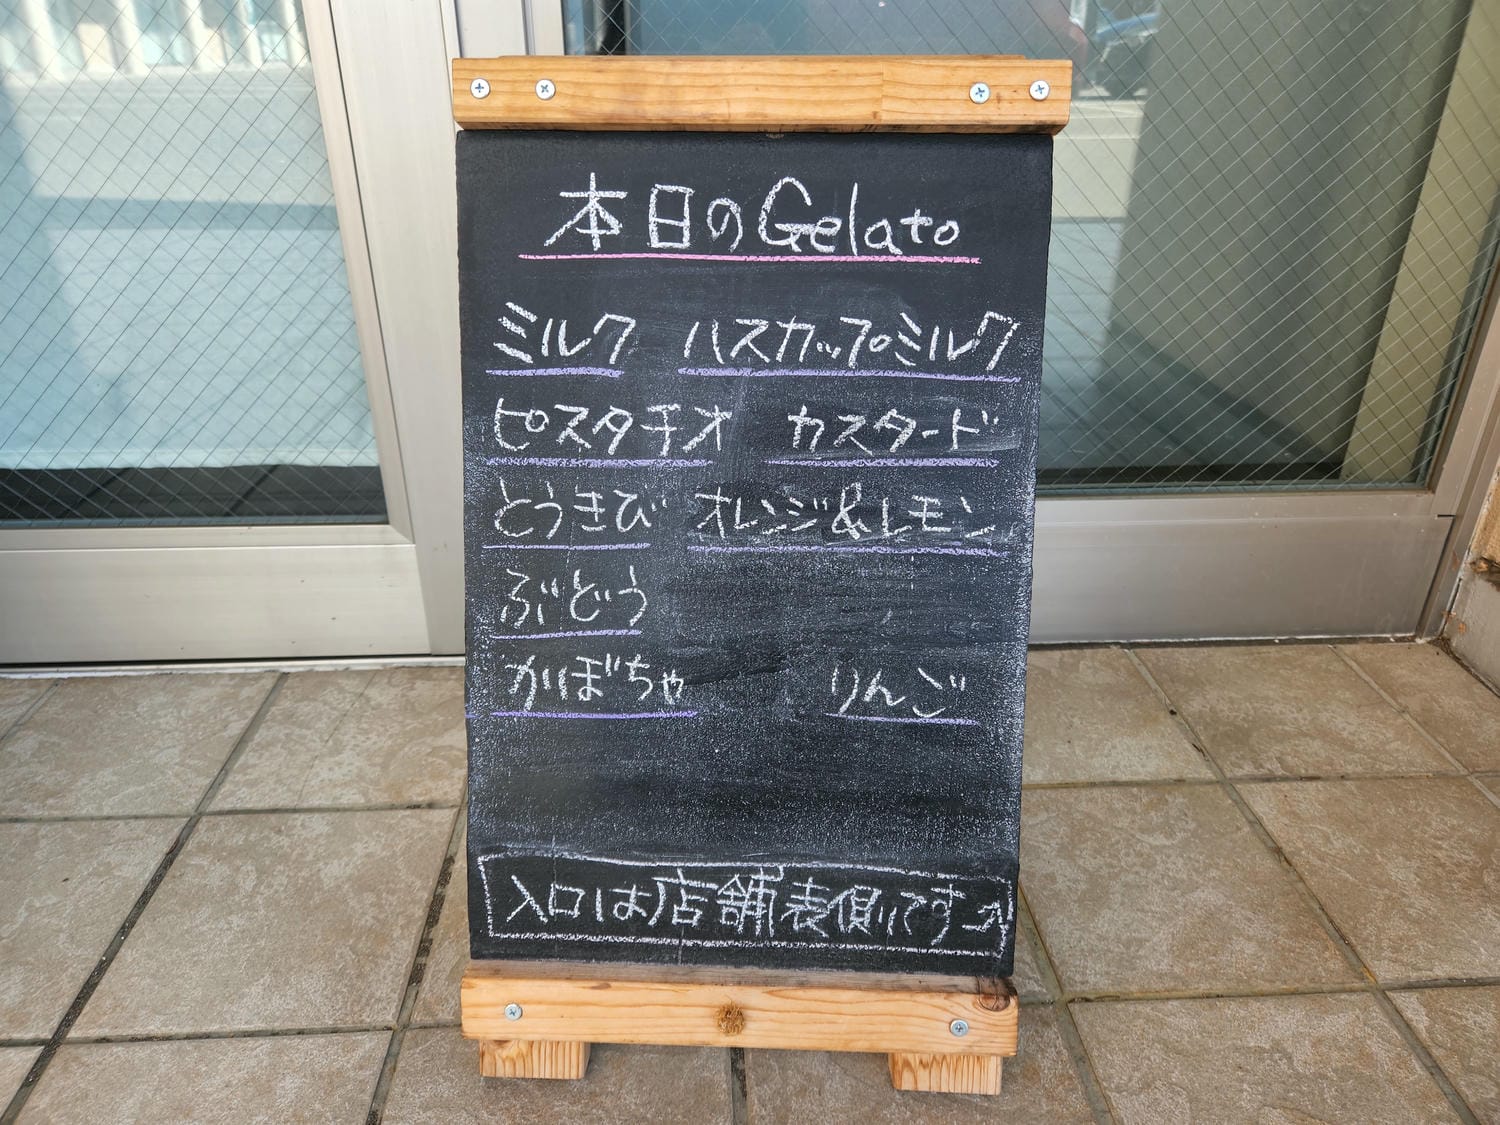 本日のGelato
ミルク ハスカップミルク
ピスタチオ カスタード
とうきび オレンジ&レモン
ぶどう
かぼちゃ りんご
入口は店舗表側です→